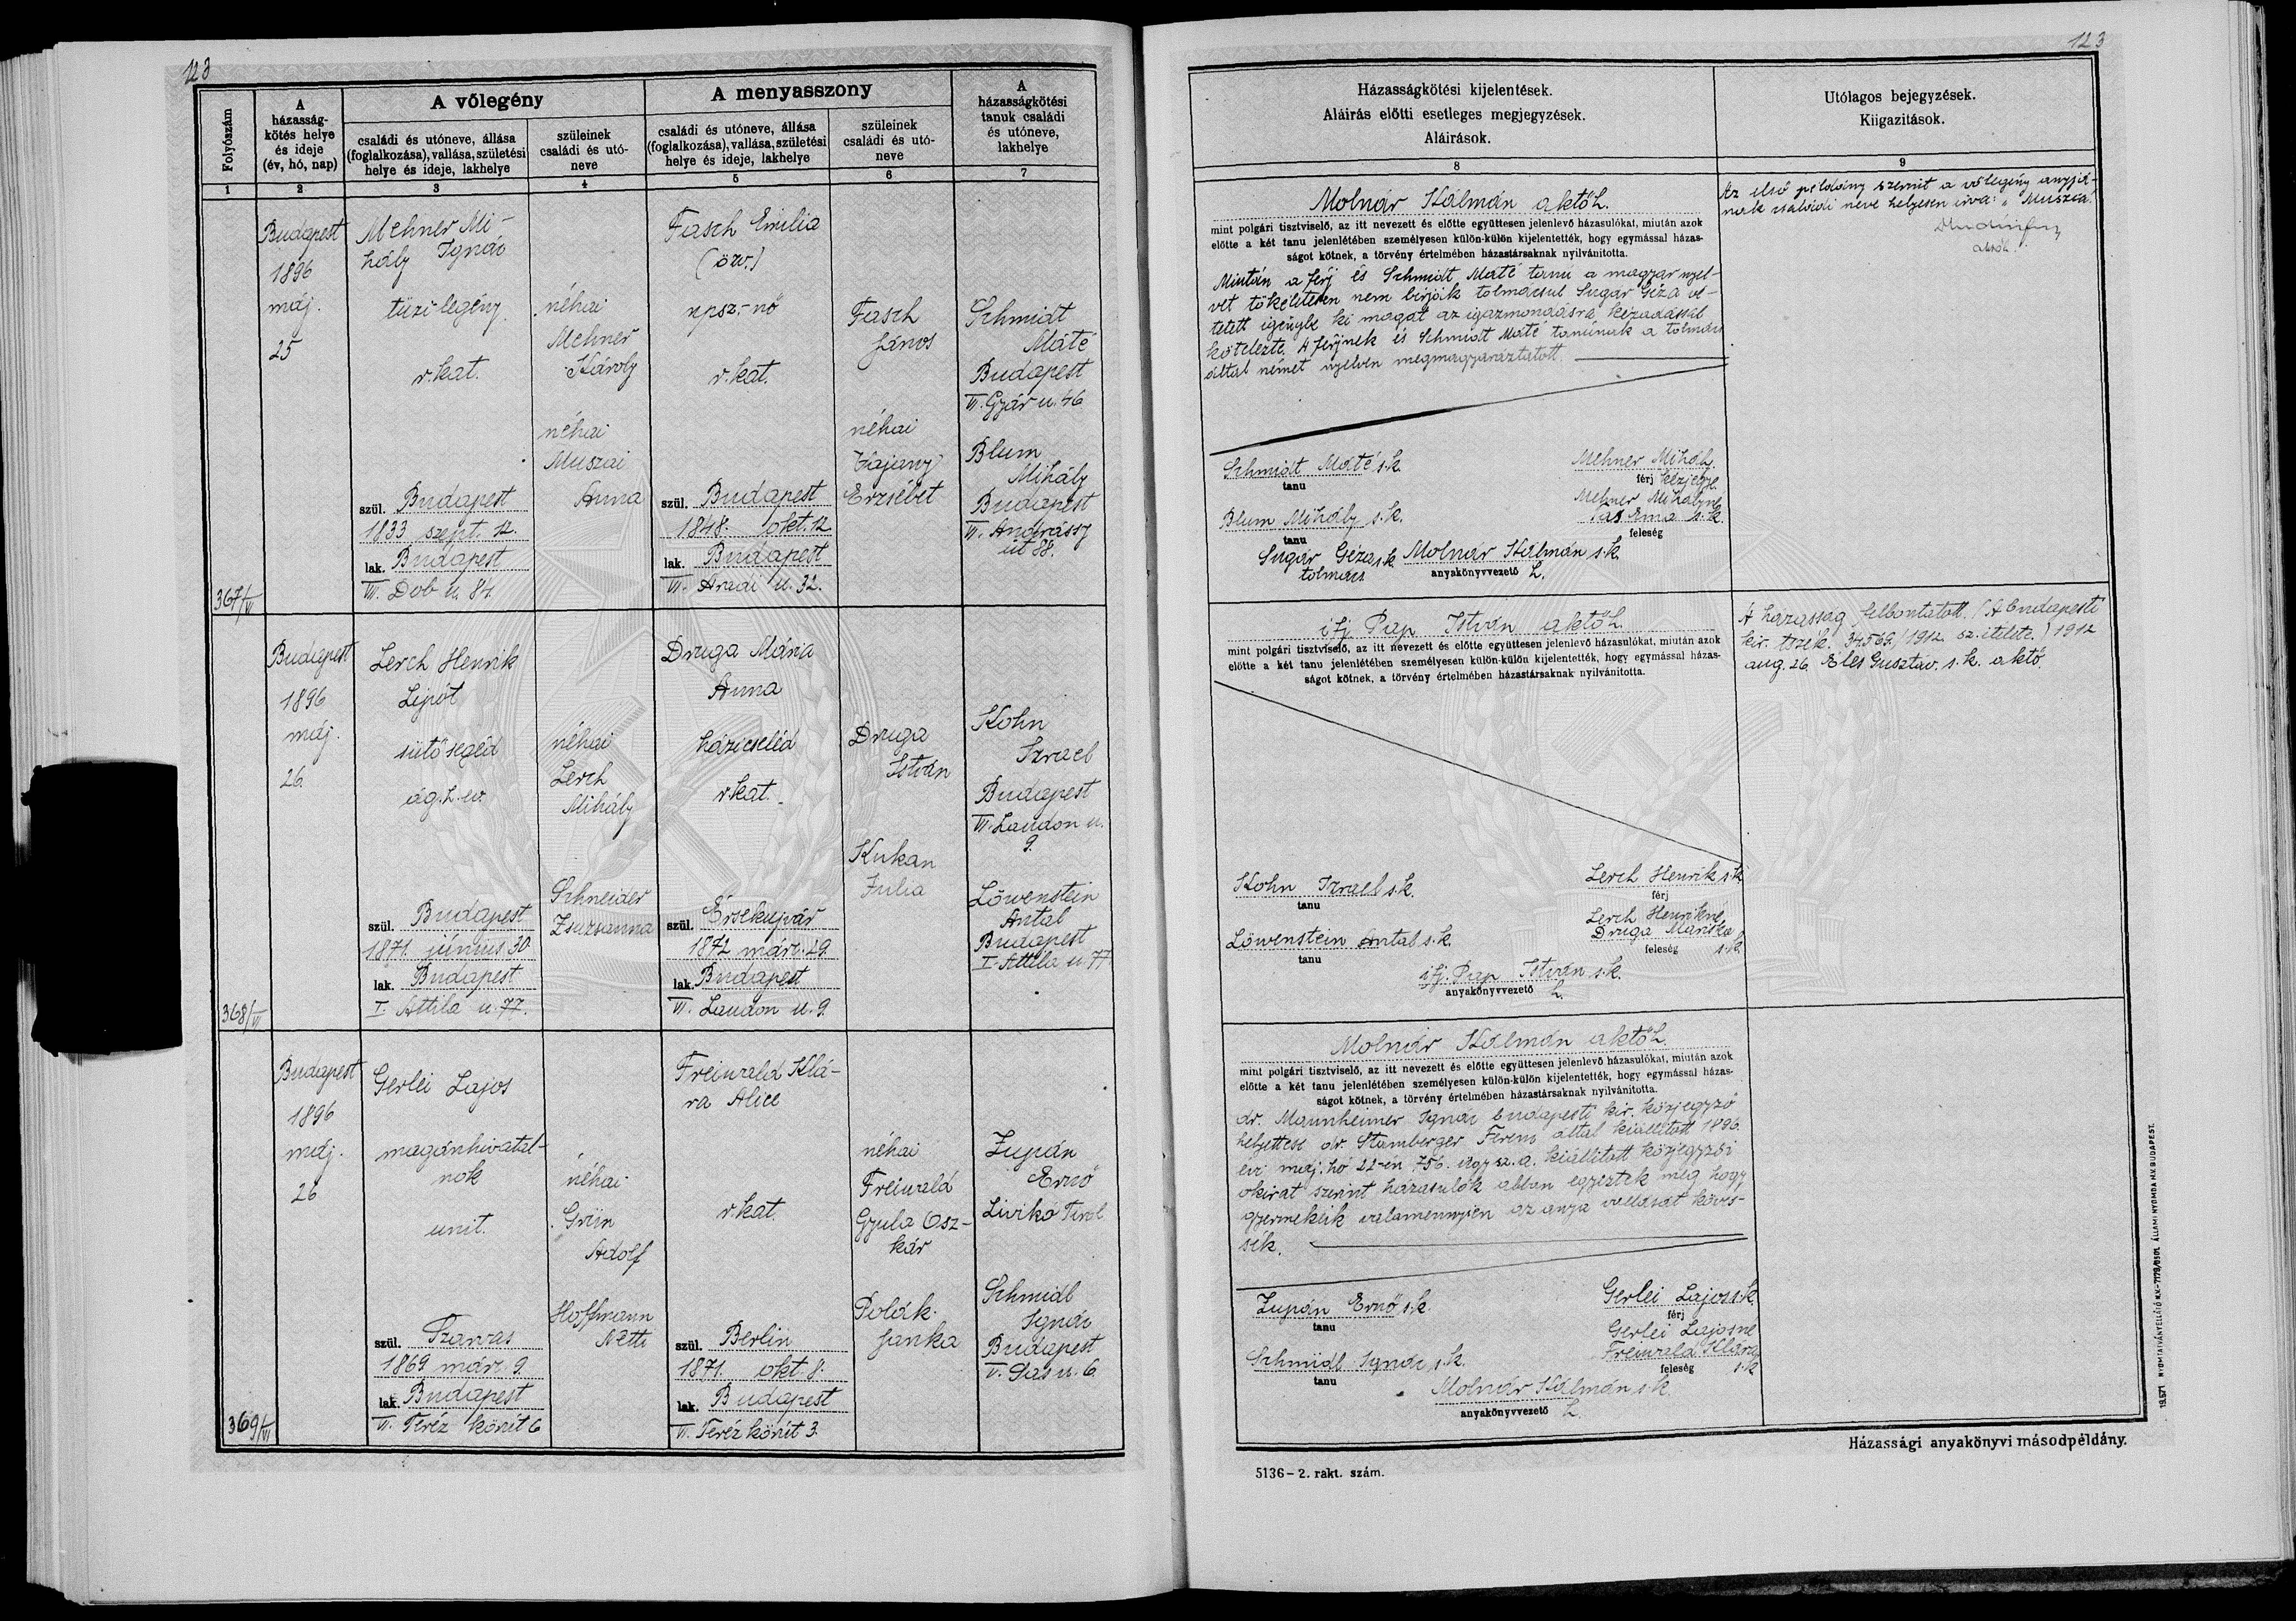 123
Folyószám
A házasság-
kötés helye
és ideje
(év, hó, nap)
A vőlegény
családi és utóneve, állása
(foglalkozása), vallása, születési
helye és ideje, lakhelye
szüleinek
családi és utó-
neve
A menyasszony
családi és utóneve, állása
(foglalkozása), vallása, születési
helye és ideje, lakhelye
szüleinek
családi és utó-
neve
A
házasságkötési
tanuk családi
és utóneve,
lakhelye
1 2 3 4 5 6 7
367/VI
Budapest
1896
máj.
25
Mehner Mi-
hály Ignác
tüzi-legény
r. kat.
szül. Budapest
1833 szept. 12.
lak. Budapest
VII. Dob u. 84.
néhai
Mehner
Károly
néhai
Muszai
Anna
Fasch Emilia
(özv.)
npsz.-nő
r. kat.
szül. Budapest
1848. okt. 12
lak. Budapest
VI. Aradi u. 32.
Fasch
János
néhai
Erzsébet
Schmidt
Máté
Budapest
VI. Gyár u. 46
Blum
Mihály
Budapest
VI. Andrássy
út 88.
368/VI
Budapest
1896
máj.
26.
Lerch Henrik
Lipót
sütősegéd
ág. h. ev.
szül. Budapest
1871. június 30
lak. Budapest
I. Attila u. 77.
néhai
Lerch
Mihály
Schneider
Zsuzsanna
Druga Mária
Anna
házicseléd
r. kat.
szül. Érsekujvár
1872 márc. 29.
lak. Budapest
VI. Laudon u. 9.
Druga
István
Kukan
Julia
Kohn
Izrael
Budapest
VI. Laudon u.
9.
Löwenstein
Antal
Budapest
I. Attila u. 77
369/VI
Budapest
1896
máj.
26
Gerlei Lajos
magánhivatal-
nok
unit.
szül. Szarvas
1869 márc. 9.
lak. Budapest
VI. Teréz körút 6
néhai
Grün
Adolf
Hoffmann
Netti
Freiwald Klá-
ra Alice
r. kat.
szül. Berlin
1871. okt. 8.
lak. Budapest
VI. Teréz körút 3.
néhai
Freiwald
Gyula Osz-
kár
Polák
Janka
Zupán
Ernő
Schmidl
Ignác
Budapest
V. Sas u. 6.
123
Házasságkötési kijelentések.
Aláirás előtti esetleges megjegyzések.
Aláirások.
Utólagos bejegyzések.
Kiigazitások.
8 9
Molnár Kálmán aktőh.
mint polgári tisztviselő, az itt nevezett és előtte együttesen jelenlevő házasulókat, miután azok
előtte a két tanu jelenlétében személyesen külön-külön kijelentették, hogy egymással házas-
ságot kötnek, a törvény értelmében házastársaknak nyilvánitotta.
Miután a férj és Schmidt Máté tanu a magyar nyel-
vet tökéletesen nem birják tolmácsul Sugár Géza vé-
tetett igénybe ki magát az igazmondásra kézadással
kötelezte. A férjnek és Schmidt Máté tanúnak a tolmács
által német nyelven megmagyaráztatott.
Schmidt Máté s.k.
tanu
Mehner Mihály
férj kézjegye.
Blum Mihály s.k.
tanu
Mehner Mihályné
Fas Ema s.k.
feleség
Sugár Géza s.k.
tolmács
Molnár Kálmán s.k.
anyakönyvvezető h.
Az első példány szerint a vőlegény anyjá-
nak családi neve helyesen irva: "Muszka".
ifj. Pap István aktőh
mint polgári tisztviselő, az itt nevezett és előtte együttesen jelenlevő házasulókat, miután azok
előtte a két tanu jelenlétében személyesen külön-külön kijelentették, hogy egymással házas-
ságot kötnek, a törvény értelmében házastársaknak nyilvánitotta.
Kohn Izrael s.k.
tanu
Lerch Henrik s.k.
férj
Löwenstein Antal s.k.
tanu
Lerch Henrikné
Druga Mariska
feleség s.k.
ifj. Pap István s.k.
anyakönyvvezető h.
A házasság felbontatott. (A budapesti
kir. tszék. 34569/1912 sz. itélete.) 1912
aug. 26 Éles Gusztáv. s.k. aktő.
Molnár Kálmán aktőh.
mint polgári tisztviselő, az itt nevezett és előtte együttesen jelenlevő házasulókat, miután azok
előtte a két tanu jelenlétében személyesen külön-külön kijelentették, hogy egymással házas-
ságot kötnek, a törvény értelmében házastársaknak nyilvánitotta.
dr. Mannheimer Ignác budapesti kir. közjegyző
helyettese dr. Stamberger Ferenc által kiállitott 1896.
évi máj. hó 22-én 756. ügysz. a. kiállitott közjegyzői
okirat szerint házasulók abban egyeztek meg hogy
gyermekeik valamennyien az anya vallását köves-
sék.
Zupán Ernő s.k.
tanu
Gerlei Lajos s.k.
férj
Schmidl Ignác s.k.
tanu
Gerlei Lajosné
Freiwald Klára
feleség s.k.
Molnár Kálmán s.k.
anyakönyvvezető h.
Házassági anyakönyvi másodpéldány.
5136-2. rakt. szám.